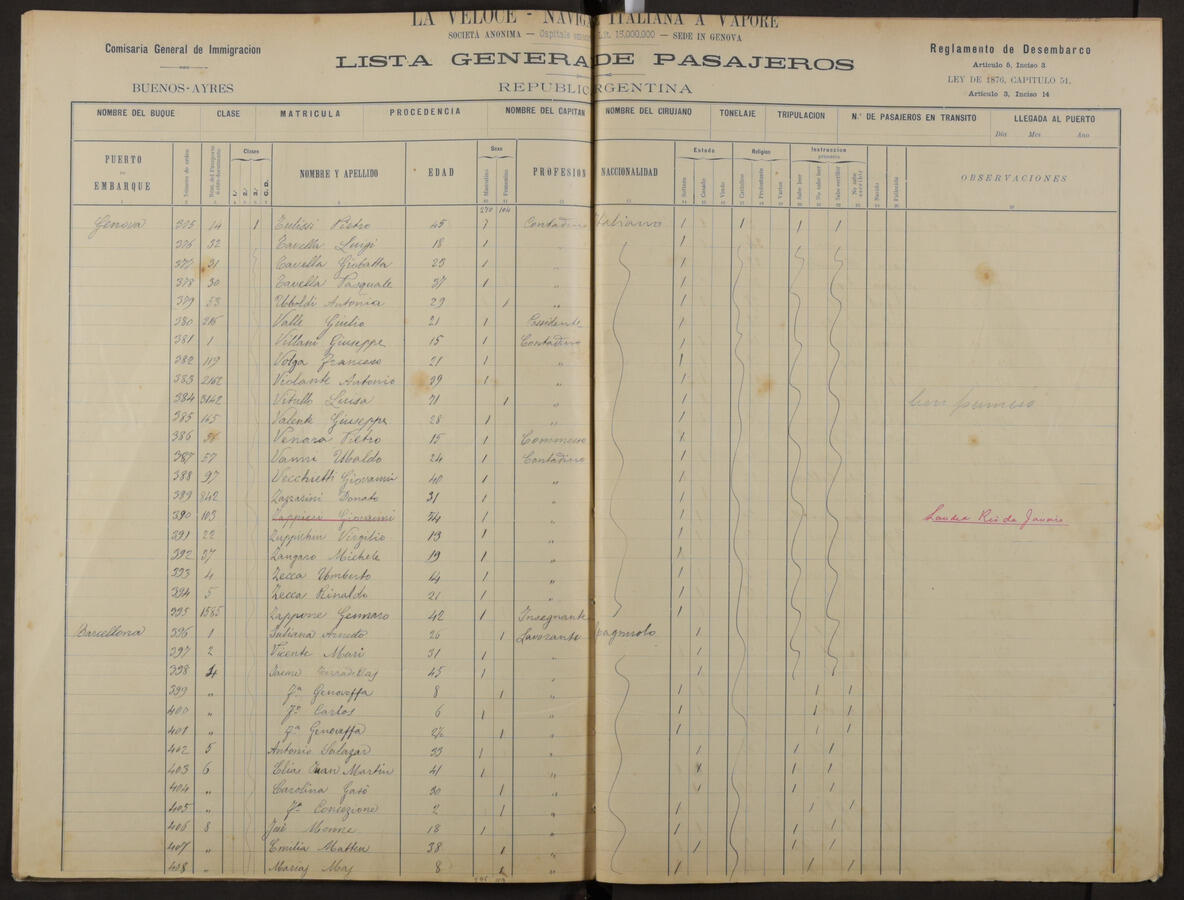 LA VELOCE - NAVIG ITALIANA A VAPORE
SOCIETÀ ANONIMA — Capitale Lit. 15.000.000 — SEDE IN GENOVA
Comisaria General de Immigracion
BUENOS-AYRES
LISTA GENERA DE PASAJEROS
REPUBLIC RGENTINA
Reglamento de Desembarco
Articulo 5, Inciso 3
LEY DE 1876, CAPITULO 51.
Articulo 3, Inciso 14
NOMBRE DEL BUQUE CLASE MATRICULA PROCEDENCIA NOMBRE DEL CAPITAN NOMBRE DEL CIRUJANO TONELAJE TRIPULACION N.º DE PASAJEROS EN TRANSITO LLEGADA AL PUERTO
Dia Mes Ano
PUERTO DE EMBARQUE Número de orden Clases NOMBRE Y APELLIDO EDAD Sexo Masculino Femenino PROFESION NACCIONALIDAD Estado Soltero Casado Viudo Religion Catolico Protestante Varios Instruccion primaria Sabe leer No sabe leer Sabe escribir No sabe escribir Nacido Fallecido OBSERVACIONES
270 104
Genova 375 14 1 Pietro 45 1 Contadino Italiano 1 1 1 1
376 32 Cavella Luigi 18 1 " 1
377 31 Cavella Giobatta 25 1 " 1
378 30 Cavella Pasquale 37 1 " 1
379 53 Uboldi Antonia 29 1 " 1
380 Valle Giulio 21 1 Possidente 1
381 1 Villani Giuseppe 15 1 Contadino 1
382 119 Volga Francesco 21 1 " 1
383 2162 Violante Antonio 39 1 " 1
384 3142 Vitullo Luisa 21 1 " 1
385 165 Valente Giuseppe 28 1 " 1
386 Venara Pietro 15 1 Commesso 1
387 57 Vanni Ubaldo 24 1 Contadino 1
388 97 Vecchietti Giovanni 40 1 " 1
389 842 Lazzarini Donato 31 1 " 1
390 103 Zappieri Giovanni 54 1 " 1 Rio de Janeiro
391 22 Virgilio 19 1 " 1
392 37 Zangaro Michele 19 1 " 1
393 4 Zecca Umberto 14 1 " 1
394 5 Zecca Rinaldo 21 1 " 1
395 1585 Zappone Gennaro 42 1 Insegnante 1
Barcellona 396 1 Juliana Arnedo 26 1 Lavorante Spagnuolo 1
397 2 Vicente Mari 31 1 " 1
398 4 Jaime 45 1 " 1
399 " Ja Genoveffa 8 1 " 1 1 1
400 " Jo Carlos 6 1 " 1 1 1
401 " Ja Genoveffa 2½ 1 " 1 1 1
402 5 Antonio Salazar 33 1 " 1 1 1
403 6 Elias Juan Martin 41 1 " 1 1 1
404 " Carolina Gasò 30 1 " 1 1 1
405 " Ja Concezione 2 1 " 1 1 1
406 8 José Monne 18 1 " 1 1 1
407 " Emilia Matteu 38 1 " 1 1 1
408 " Marias Mas 8 1 " 1 1 1